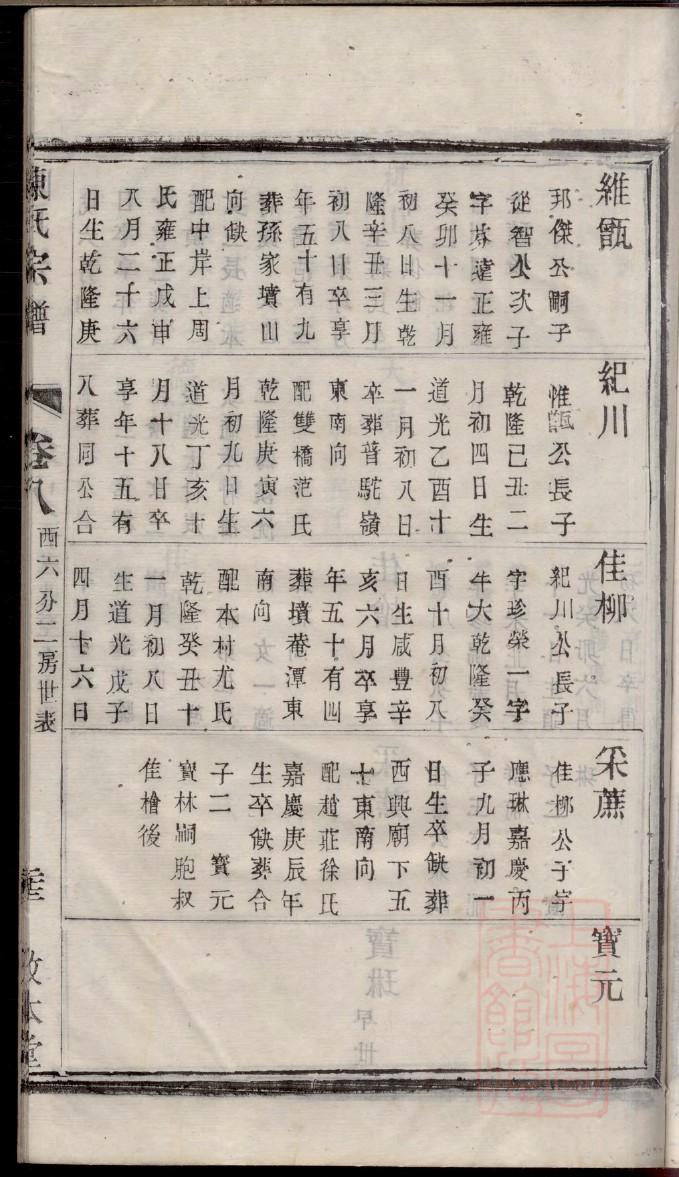 維甑
邦傑公嗣子
從智公次子
字芬遠正雍
癸卯十一月
初八日生乾
隆辛丑三月
初八日卒享
年五十有九
葬孫家墳山
向缺
配中岸上周
氏雍正戊申
八月二十六
日生乾隆庚
紀川
惟甑公長子
乾隆己丑二
月初四日生
道光乙酉十
一月初八日
卒葬普駝嶺
東南向
配雙橋范氏
乾隆庚寅六
月初九日生
道光丁亥十
月十八日卒
享年十五有
八葬同公合
佳柳
紀川公長子
字珍榮一字
牛大乾隆癸
酉十月初八
日生咸豐辛
亥六月卒享
年五十有四
葬墳菴潭東
南向
配本村尤氏
乾隆癸丑十
一月初八日
生道光戊子
四月十六日
采蔗
佳柳公子字
應琳嘉慶丙
子九月初一
日生卒缺葬
西興廟下五
七東南向
配趙莊徐氏
嘉慶庚辰年
生卒缺葬合
子二 寶元
寶林嗣胞叔
佳檜後
寶元
陳氏宗譜
卷八
西六分二房世表
敦本堂